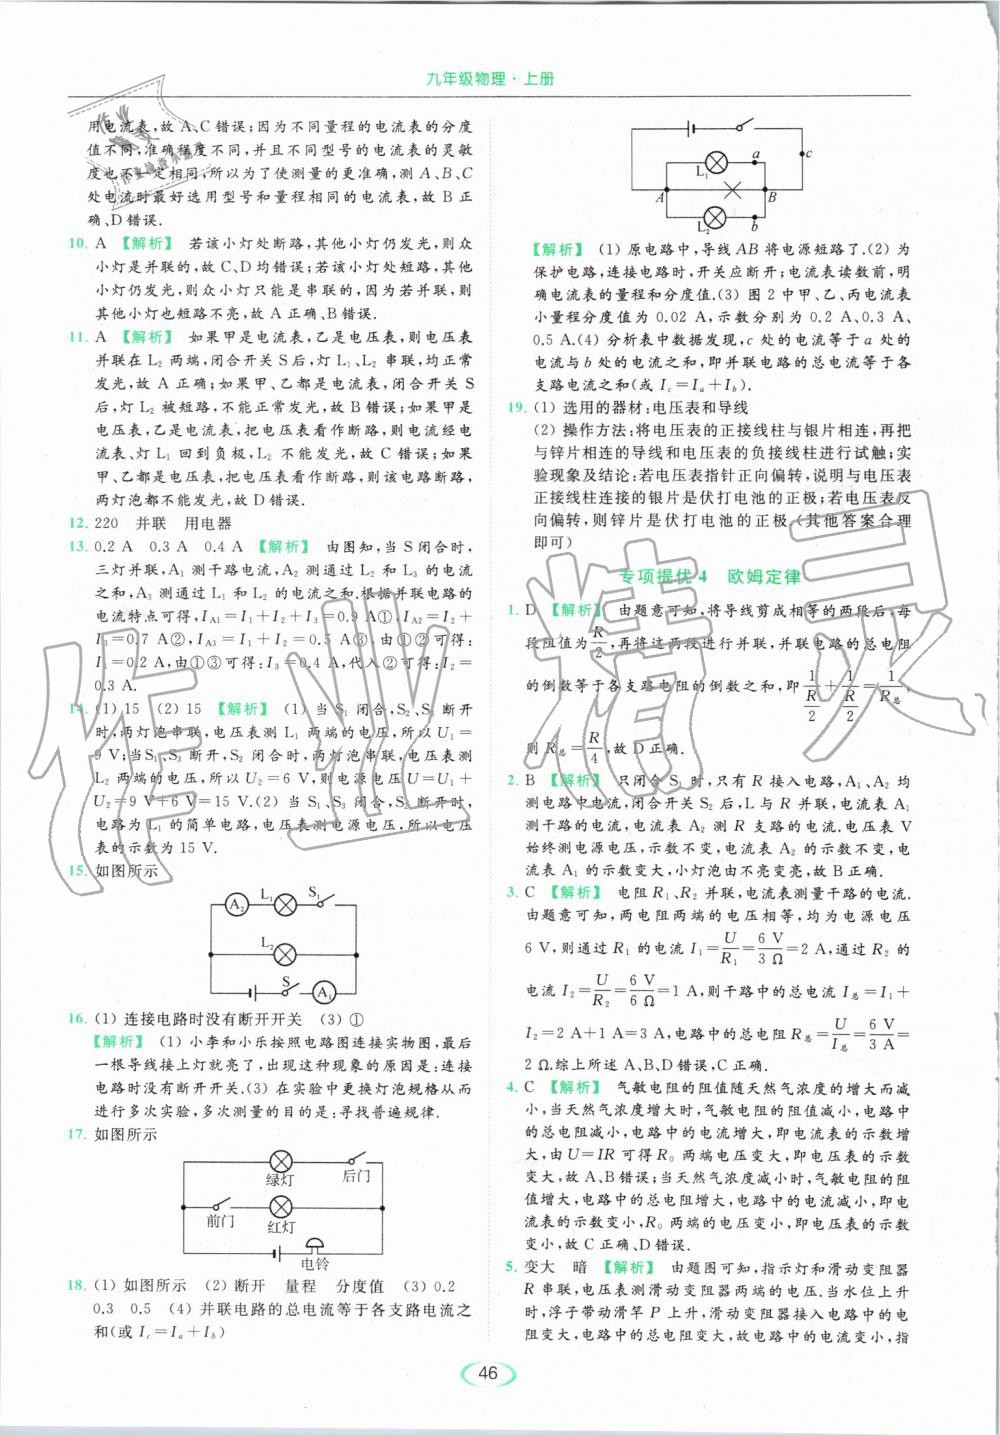 九年级物理·上册
用电流表,故 A、C 错误;因为不同量程的电流表的分度
值不同,准确程度不同,并且不同型号的电流表的灵敏
度也不一定相同,所以为了使测量的更准确,测 A、B、C
处电流时最好选用型号和量程相同的电流表,故 B 正
确、D 错误.
10. A 【解析】 若该小灯处断路,其他小灯仍发光,则众
小灯是并联的,故 C、D 均错误;若该小灯处短路,其他
小灯仍发光,则众小灯只能是串联的,并联的电路,则
其他小灯也短路不亮,故 A 正确、B 错误.
11. A 【解析】 如果甲是电流表,乙是电压表,则电压表
并联在 L₂ 两端,闭合开关 S 后,灯 L₁、L₂ 串联,均正常
发光,故 A 正确;如果甲、乙都是电流表,闭合开关 S
后,灯 L₂ 被短路,不能正常发光,故 B 错误;如果甲是
电压表,乙是电流表,把电压表看作断路,则电流经电
流表、灯 L₁ 回到负极,L₂ 不能发光,故 C 错误;如果
甲、乙都是电压表,把电压表看作断路,则该电路断路,
两灯泡都不能发光,故 D 错误.
12. 220 并联 用电器
13. 0.2 A 0.3 A 0.4 A 【解析】 由图知,当 S 闭合时,
三灯并联,A₁ 测干路电流,A₂ 测 L₂、L₃ 的电流之和,
A₃ 测 L₁、L₂ 的电流之和.根据并联电路的
电流特点可得,I_A1=I₁+I₂+I₃=0.9 A①,I_A2=I₂+
I₃=0.7 A②,I_A3=I₁+I₂=0.5 A③,由①②可得:
I₁=0.2 A,由①③可得:I₃=0.4 A,代入②可得:I₂=
0.3 A.
14. (1) 15 (2) 15 【解析】 (1) 当 S₁ 闭合,S₂、S₃ 断开
时,两灯泡串联,电压表测 L₁ 两端的电压,所以 U₁=
9 V;当 S₁、S₃ 断开,S₂ 闭合时,两灯泡串联,电压表测
L₂ 两端的电压,所以 U₂=6 V,则电源电压 U=U₁+
U₂=9 V+6 V=15 V.(2) 当 S₁、S₃ 闭合,S₂ 断开时,
电路为 L₁ 的简单电路,电压表测电源电压,所以电压
表的示数为 15 V.
15. 如图所示
A₂ L₁ S₁
L₂
S A₁
16. (1) 连接电路时没有断开开关 (3) ①
【解析】 (1) 小李和小乐按照电路图连接实物图,最后
一根导线接上灯就亮了,出现这种现象的原因是:连接
电路时没有断开开关.(3) 在实验中更换灯泡规格从而
进行多次实验,多次测量的目的是:寻找普遍规律.
17. 如图所示
绿灯 后门
前门 红灯
电铃
18. (1) 如图所示 (2) 断开 量程 分度值 (3) 0.2
0.3 0.5 (4) 并联电路的总电流等于各支路电流之
和(或 I_c=I_a+I_b)
L₁ a c
A B
L₂ b
【解析】 (1) 原电路中,导线 AB 将电源短路了.(2) 为
保护电路,连接电路时,开关应断开;电流表读数前,明
确电流表的量程和分度值.(3) 图 2 中甲、乙、丙电流表
小量程分度值为 0.02 A,示数分别为 0.2 A、0.3 A、
0.5 A.(4) 分析表中数据发现,c 处的电流等于 a 处的
电流与 b 处的电流之和,即并联电路的总电流等于各
支路电流之和(或 I_c=I_a+I_b).
19. (1) 选用的器材:电压表和导线
(2) 操作方法:将电压表的正接线柱与银片相连,再把
与锌片相连的导线和电压表的负接线柱进行试触;实
验现象及结论:若电压表指针正向偏转,说明与电压表
正接线柱连接的银片是伏打电池的正极;若电压表反
向偏转,则锌片是伏打电池的正极(其他答案合理
即可)
专项提优 4 欧姆定律
1. D 【解析】 由题意可知,将导线剪成相等的两段后,每
段阻值为R/2,再将这两段进行并联,并联电路的总电阻
的倒数等于各支路电阻的倒数之和,即 1/(R/2)+1/(R/2)=1/R总,
则 R总=R/4,故 D 正确.
2. B 【解析】 只闭合 S₁ 时,只有 R 接入电路,A₁、A₂ 均
测电路中电流,闭合开关 S₂ 后,L 与 R 并联,电流表 A₁
测干路的电流,电流表 A₂ 测 R 支路的电流,电压表 V
始终测电源电压,示数不变,电流表 A₂ 的示数不变,
电流表 A₁ 的示数变大,小灯泡由不亮变亮,故 B 正确.
3. C 【解析】 电阻 R₁、R₂ 并联,电流表测量干路的电流.
由题意可知,两电阻两端的电压相等,均为电源电压
6 V,则通过 R₁ 的电流 I₁=U/R₁=6 V/3 Ω=2 A,通过 R₂ 的
电流 I₂=U/R₂=6 V/6 Ω=1 A,则干路中的总电流 I总=I₁+
I₂=2 A+1 A=3 A,电路中的总电阻 R总=U/I总=6 V/3 A=
2 Ω.综上所述 A、B、D 错误,C 正确.
4. C 【解析】 气敏电阻的阻值随天然气浓度的增大而减
小,当天然气浓度增大时,气敏电阻的阻值减小,电路中
的总电阻减小,电路中的电流增大,即电流表的示数增
大,由 U=IR 可得 R₀ 两端电压变大,即电压表的示数
变大,故 A、B 错误;当天然气浓度减小时,气敏电阻的阻
值增大,电路中的总电阻增大,电路中的电流减小,即电
流表的示数变小,R₀ 两端的电压变小,即电压表的示数
变小,故 C 正确、D 错误.
5. 变大 暗 【解析】 由题图可知,指示灯和滑动变阻器
R 串联,电压表测滑动变阻器两端的电压.当水位上升
时,浮子带动滑竿 P 上升,滑动变阻器接入电路中的电
阻变大,电路中的总电阻变大,故电路中的电流变小,指
46